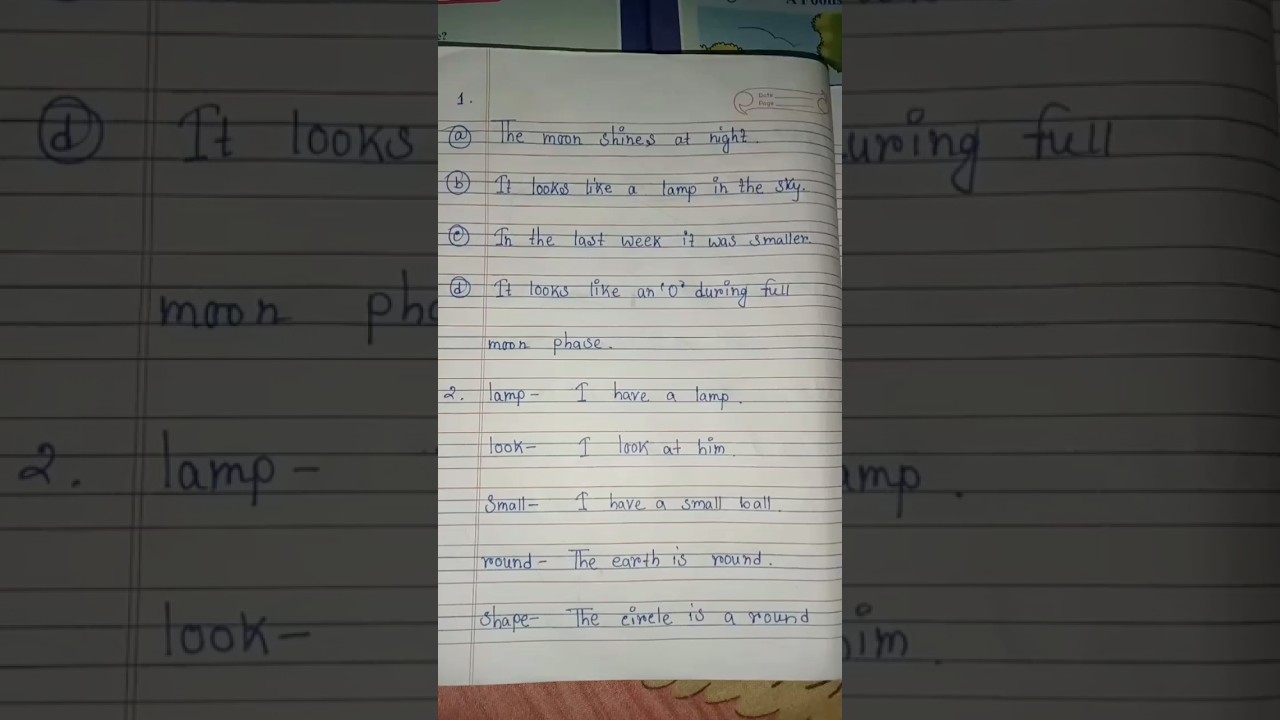 1.
Date
Page
ⓐ The moon shines at night.
ⓑ It looks like a lamp in the sky.
ⓒ In the last week it was smaller.
ⓓ It looks like an 'O' during full
moon phase.
2. lamp - I have a lamp.
look - I look at him.
Small - I have a small ball.
round - The earth is round.
shape - The circle is a round